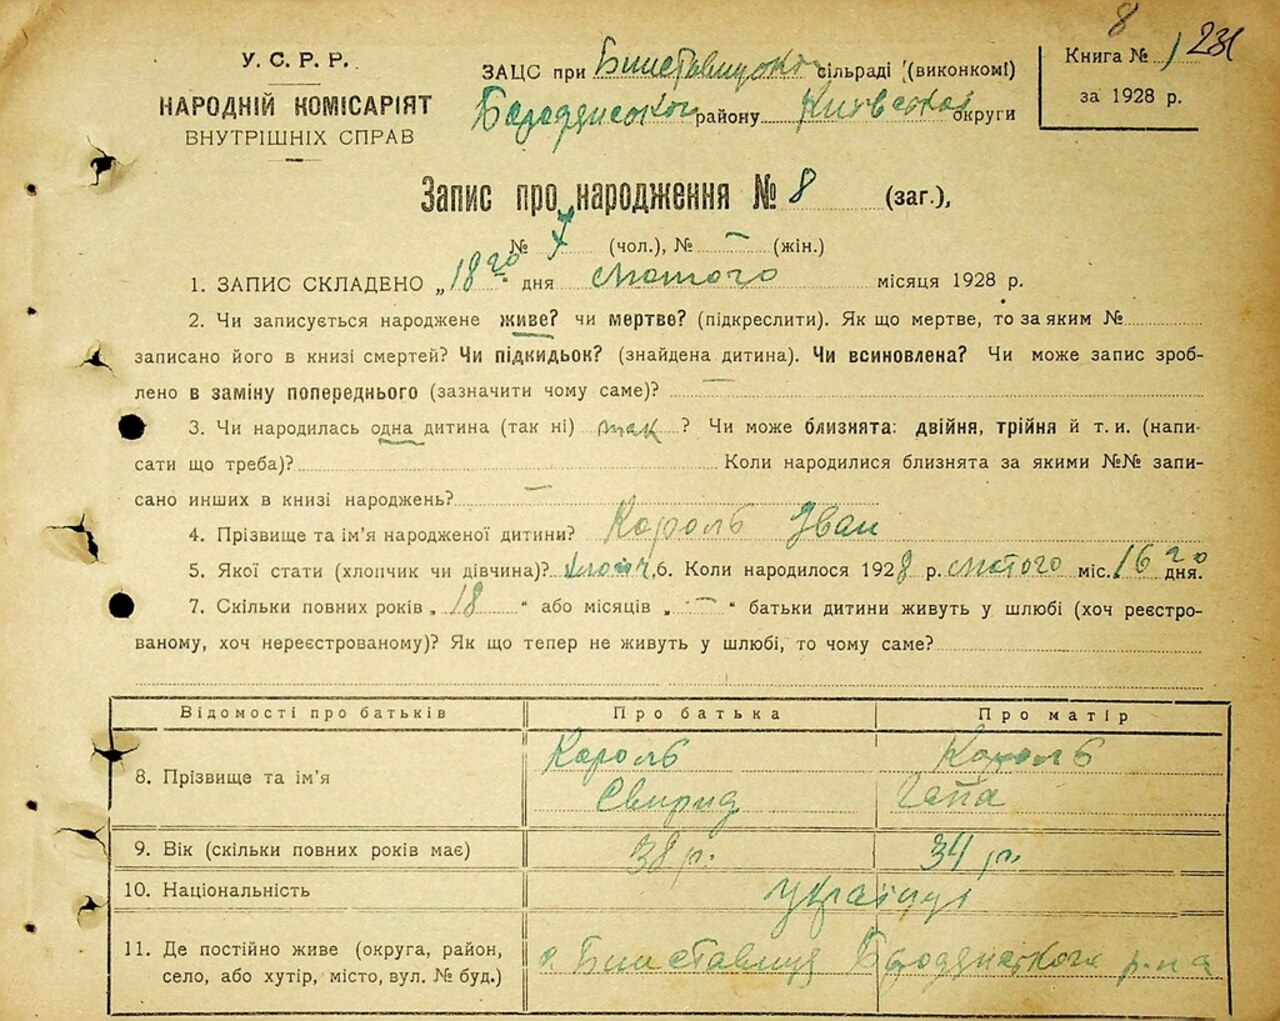 8
231
У. С. Р. Р.
НАРОДНІЙ КОМІСАРІЯТ
ВНУТРІШНІХ СПРАВ
ЗАЦС при сільраді (виконкомі)
району Київської округи
Книга № 1
за 1928 р.
Запис про народження № 8 (заг.),
№ (чол.), № — (жін.)
1. ЗАПИС СКЛАДЕНО „18го“ дня лютого місяця 1928 р.
2. Чи записується народжене живе? чи мертве? (підкреслити). Як що мертве, то за яким №
записано його в книзі смертей? Чи підкидьок? (знайдена дитина). Чи всиновлена? Чи може запис зроб-
лено в заміну попереднього (зазначити чому саме)? —
3. Чи народилась одна дитина (так ні) так ? Чи може близнята: двійня, трійня й т. и. (напи-
сати що треба)? Коли народилися близнята за якими №№ запи-
сано инших в книзі народжень? —
4. Прізвище та ім'я народженої дитини? Король Іван
5. Якої стати (хлопчик чи дівчина)? хлопч. 6. Коли народилося 1928 р. лютого міс. 16го дня.
7. Скільки повних років „ 18 “ або місяців „ — “ батьки дитини живуть у шлюбі (хоч реєстро-
ваному, хоч нереєстрованому)? Як що тепер не живуть у шлюбі, то чому саме?
Відомості про батьків Про батька Про матір
8. Прізвище та ім'я Король Король
Свирид Гапа
9. Вік (скільки повних років має) 38 р. 34 р.
10. Національність українці
11. Де постійно живе (округа, район,
село, або хутір, місто, вул. № буд.) р-на